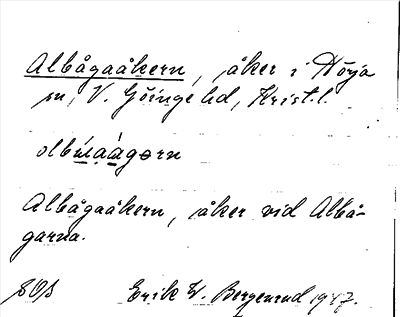 Albågaåkern, åker i Nörja
sn, V. Göinge hd, Krist. l.
Albågaåkern, åker vid Albå-
garna.
Erik W. Bergenrud 1947.